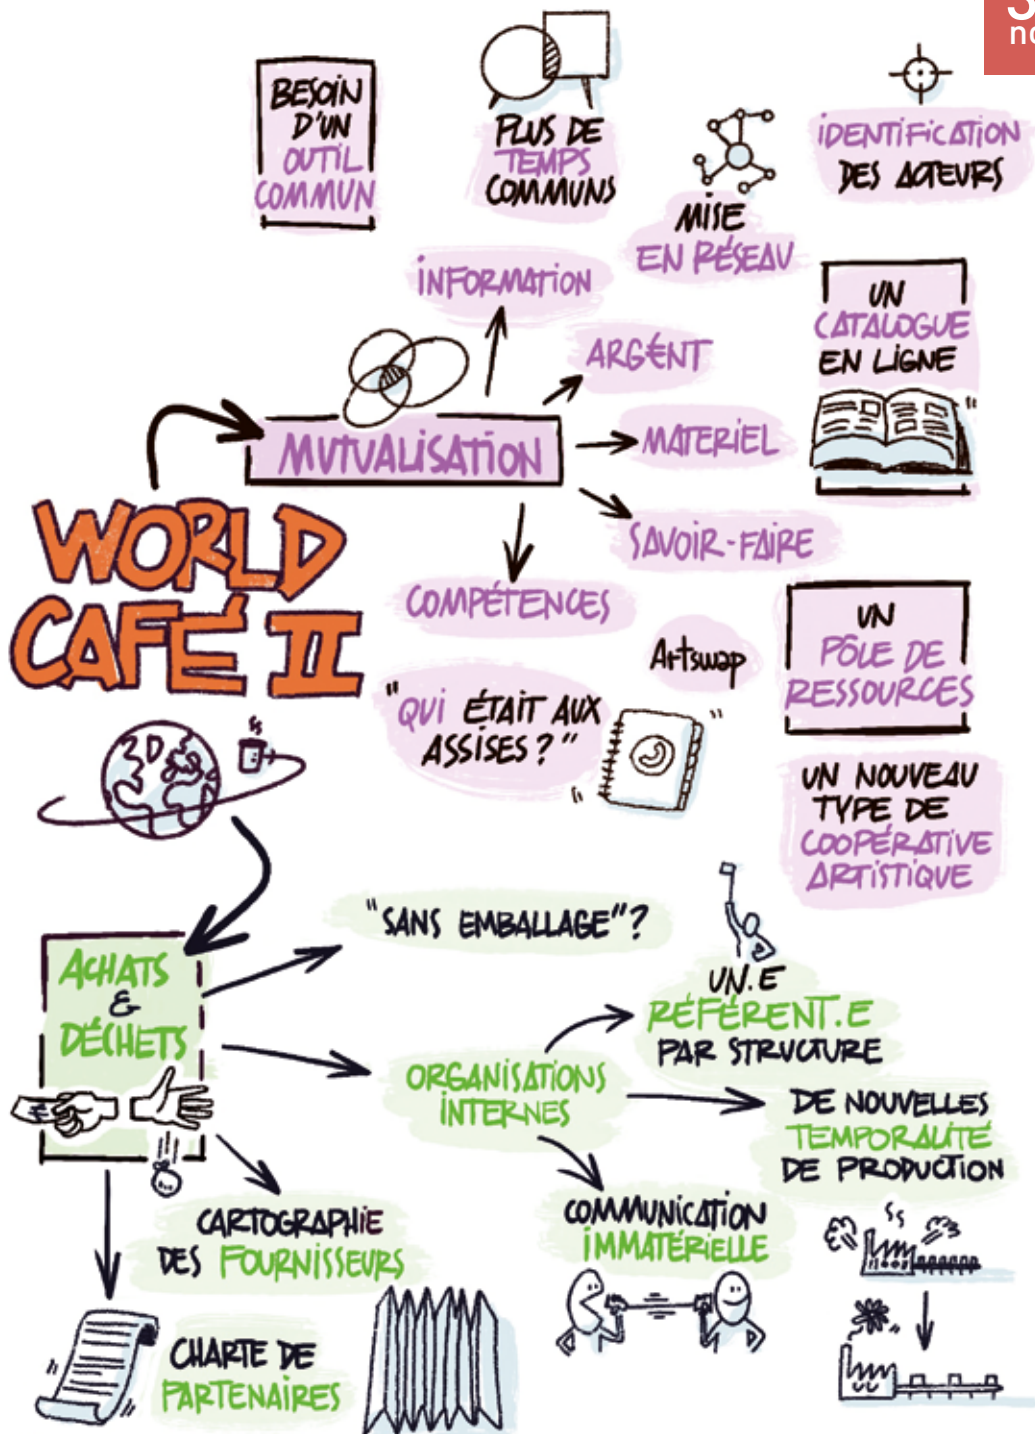 BESOIN
D'UN
OUTIL
COMMUN
PLUS DE
TEMPS
COMMUNS
MISE
EN RÉSEAU
IDENTIFICATION
DES ACTEURS
INFORMATION
ARG€NT
MATERIEL
SAVOIR-FAIRE
COMPÉTENCES
MUTUALISATION
UN
CATALOGUE
EN LIGNE
WORLD
CAFÉ II
3D
Artswap
"QUI ÉTAIT AUX
ASSISES ?"
UN
PÔLE DE
RESSOURCES
UN NOUVEAU
TYPE DE
COOPÉRATIVE
ARTISTIQUE
ACHATS
&
DÉCHETS
"SANS EMBALLAGE" ?
ORGANISATIONS
INTERNES
UN.E
RÉFÉRENT.E
PAR STRUCTURE
DE NOUVELLES
TEMPORALITÉ
DE PRODUCTION
COMMUNICATION
IMMATÉRIELLE
CARTOGRAPHIE
DES FOURNISSEURS
CHARTE DE
PARTENAIRES